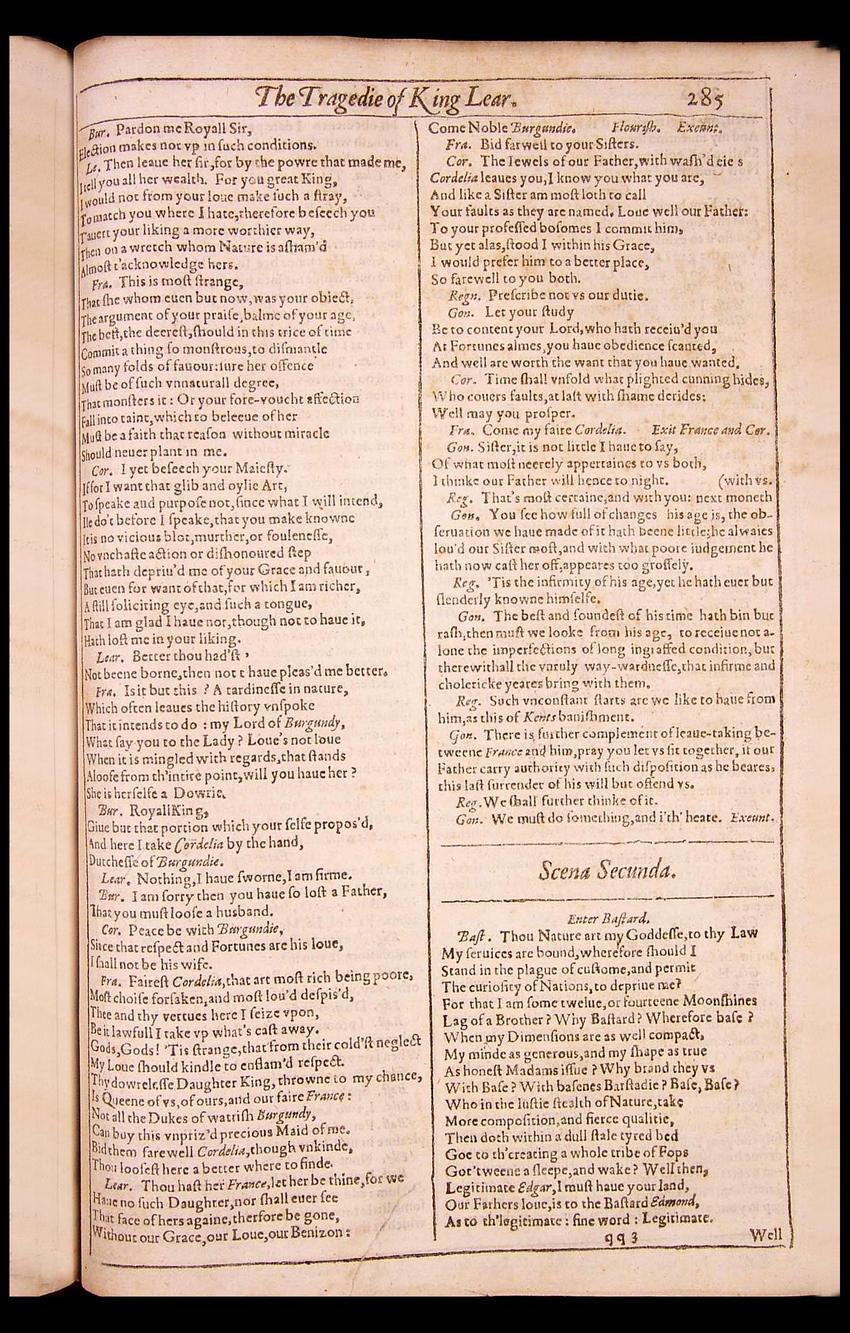 The Tragedie of King Lear. 285
Bur. Pardon me Royall Sir,
Election makes not vp in such conditions.
Le. Then leaue her sir, for by the powre that made me,
I tell you all her wealth. For you great King,
I would not from your loue make such a stray,
To match you where I hate, therefore beseech you
T'auert your liking a more worthier way,
Then on a wretch whom Nature is asham'd
Almost t'acknowledge hers.
Fra. This is most strange,
That she whom euen but now, was your obiect,
The argument of your praise, balme of your age,
The best, the deerest, should in this trice of time
Commit a thing so monstrous, to dismantle
So many folds of fauour: sure her offence
Must be of such vnnaturall degree,
That monsters it: Or your fore-voucht affection
Fall into taint, which to beleeue of her
Must be a faith that reason without miracle
Should neuer plant in me.
Cor. I yet beseech your Maiesty.
If for I want that glib and oylie Art,
To speake and purpose not, since what I will intend,
Ile do't before I speake, that you make knowne
It is no vicious blot, murther, or foulenesse,
No vnchaste action or dishonoured step
That hath depriu'd me of your Grace and fauour,
But euen for want of that, for which I am richer,
A still soliciting eye, and such a tongue,
That I am glad I haue not, though not to haue it,
Hath lost me in your liking.
Lear. Better thou had'st,
Not beene borne, then not t haue pleas'd me better.
Fra. Is it but this? A tardinesse in nature,
Which often leaues the history vnspoke
That it intends to do: my Lord of Burgundy,
What say you to the Lady? Loue's not loue
When it is mingled with regards, that stands
Aloofe from th'intire point, will you haue her?
She is herselfe a Dowrie.
Bur. Royall King,
Giue but that portion which your selfe propos'd,
And here I take Cordelia by the hand,
Dutchesse of Burgundie.
Lear. Nothing, I haue sworne, I am firme.
Bur. I am sorry then you haue so lost a Father,
That you must loose a husband.
Cor. Peace be with Burgundie,
Since that respect and Fortunes are his loue,
I shall not be his wife.
Fra. Fairest Cordelia, that art most rich being poore,
Most choise forsaken, and most lou'd despis'd,
Thee and thy vertues here I seize vpon,
Be it lawfull I take vp what's cast away.
Gods, Gods! 'Tis strange, that from their cold'st neglect
My Loue should kindle to enflam'd respect.
Thy dowrelesse Daughter King, throwne to my chance,
Is Queene of vs, of ours, and our faire France:
Not all the Dukes of watrish Burgundy,
Can buy this vnpriz'd precious Maid of me.
Bid them farewell Cordelia, though vnkinde,
Thou loosest here a better where to finde.
Lear. Thou hast her France, let her be thine, for we
Haue no such Daughter, nor shall euer see
That face of hers againe, therfore be gone,
Without our Grace, our Loue, our Benizon:
Come Noble Burgundie. Flourish. Exeunt.
Fra. Bid farwell to your Sisters.
Cor. The Iewels of our Father, with wash'd eie s
Cordelia leaues you, I know you what you are,
And like a Sister am most loth to call
Your faults as they are named. Loue well our Father:
To your professed bosomes I commit him,
But yet alas, stood I within his Grace,
I would prefer him to a better place,
So farewell to you both.
Regn. Prescribe not vs our dutie.
Gon. Let your study
Be to content your Lord, who hath receiu'd you
At Fortunes almes, you haue obedience scanted,
And well are worth the want that you haue wanted.
Cor. Time shall vnfold what plighted cunning hides,
Who couers faults, at last with shame derides:
Well may you prosper.
Fra. Come my faire Cordelia. Exit France and Cor.
Gon. Sister, it is not little I haue to say,
Of what most neerely appertaines to vs both,
I thinke our Father will hence to night. (with vs.
Reg. That's most certaine, and with you: next moneth
Gon. You see how full of changes his age is, the ob-
seruation we haue made of it hath beene little; he alwaies
lou'd our Sister most, and with what poore iudgement he
hath now cast her off, appeares too grossely.
Reg. 'Tis the infirmity of his age, yet he hath euer but
slenderly knowne himselfe.
Gon. The best and soundest of his time hath bin but
rash, then must we looke from his age, to receiue not a-
lone the imperfections of long ingraffed condition, but
therewithall the vnruly way-wardnesse, that infirme and
cholericke yeares bring with them.
Reg. Such vnconstant starts are we like to haue from
him, as this of Kents banishment.
Gon. There is further complement of leaue-taking be-
tweene France and him, pray you let vs sit together, if our
Father carry authority with such disposition as he beares,
this last surrender of his will but offend vs.
Reg. We shall further thinke of it.
Gon. We must do something, and i'th' heate. Exeunt.
Scena Secunda.
Enter Bastard.
Bast. Thou Nature art my Goddesse, to thy Law
My seruices are bound, wherefore should I
Stand in the plague of custome, and permit
The curiosity of Nations, to depriue me?
For that I am some twelue, or fourteene Moonshines
Lag of a Brother? Why Bastard? Wherefore base?
When my Dimensions are as well compact,
My minde as generous, and my shape as true
As honest Madams issue? Why brand they vs
With Base? With basenes Barstadie? Base, Base?
Who in the lustie stealth of Nature, take
More composition, and fierce qualitie,
Then doth within a dull stale tyred bed
Goe to th'creating a whole tribe of Fops
Got 'tweene a sleepe, and wake? Well then,
Legitimate Edgar, I must haue your land,
Our Fathers loue, is to the Bastard Edmond,
As to th'legitimate: fine word: Legitimate.
qq3 Well